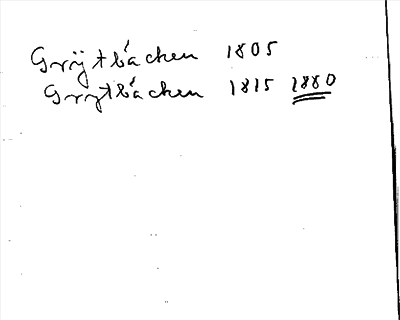 Gryÿtbácken 1805
Grytbácken 1815 1880